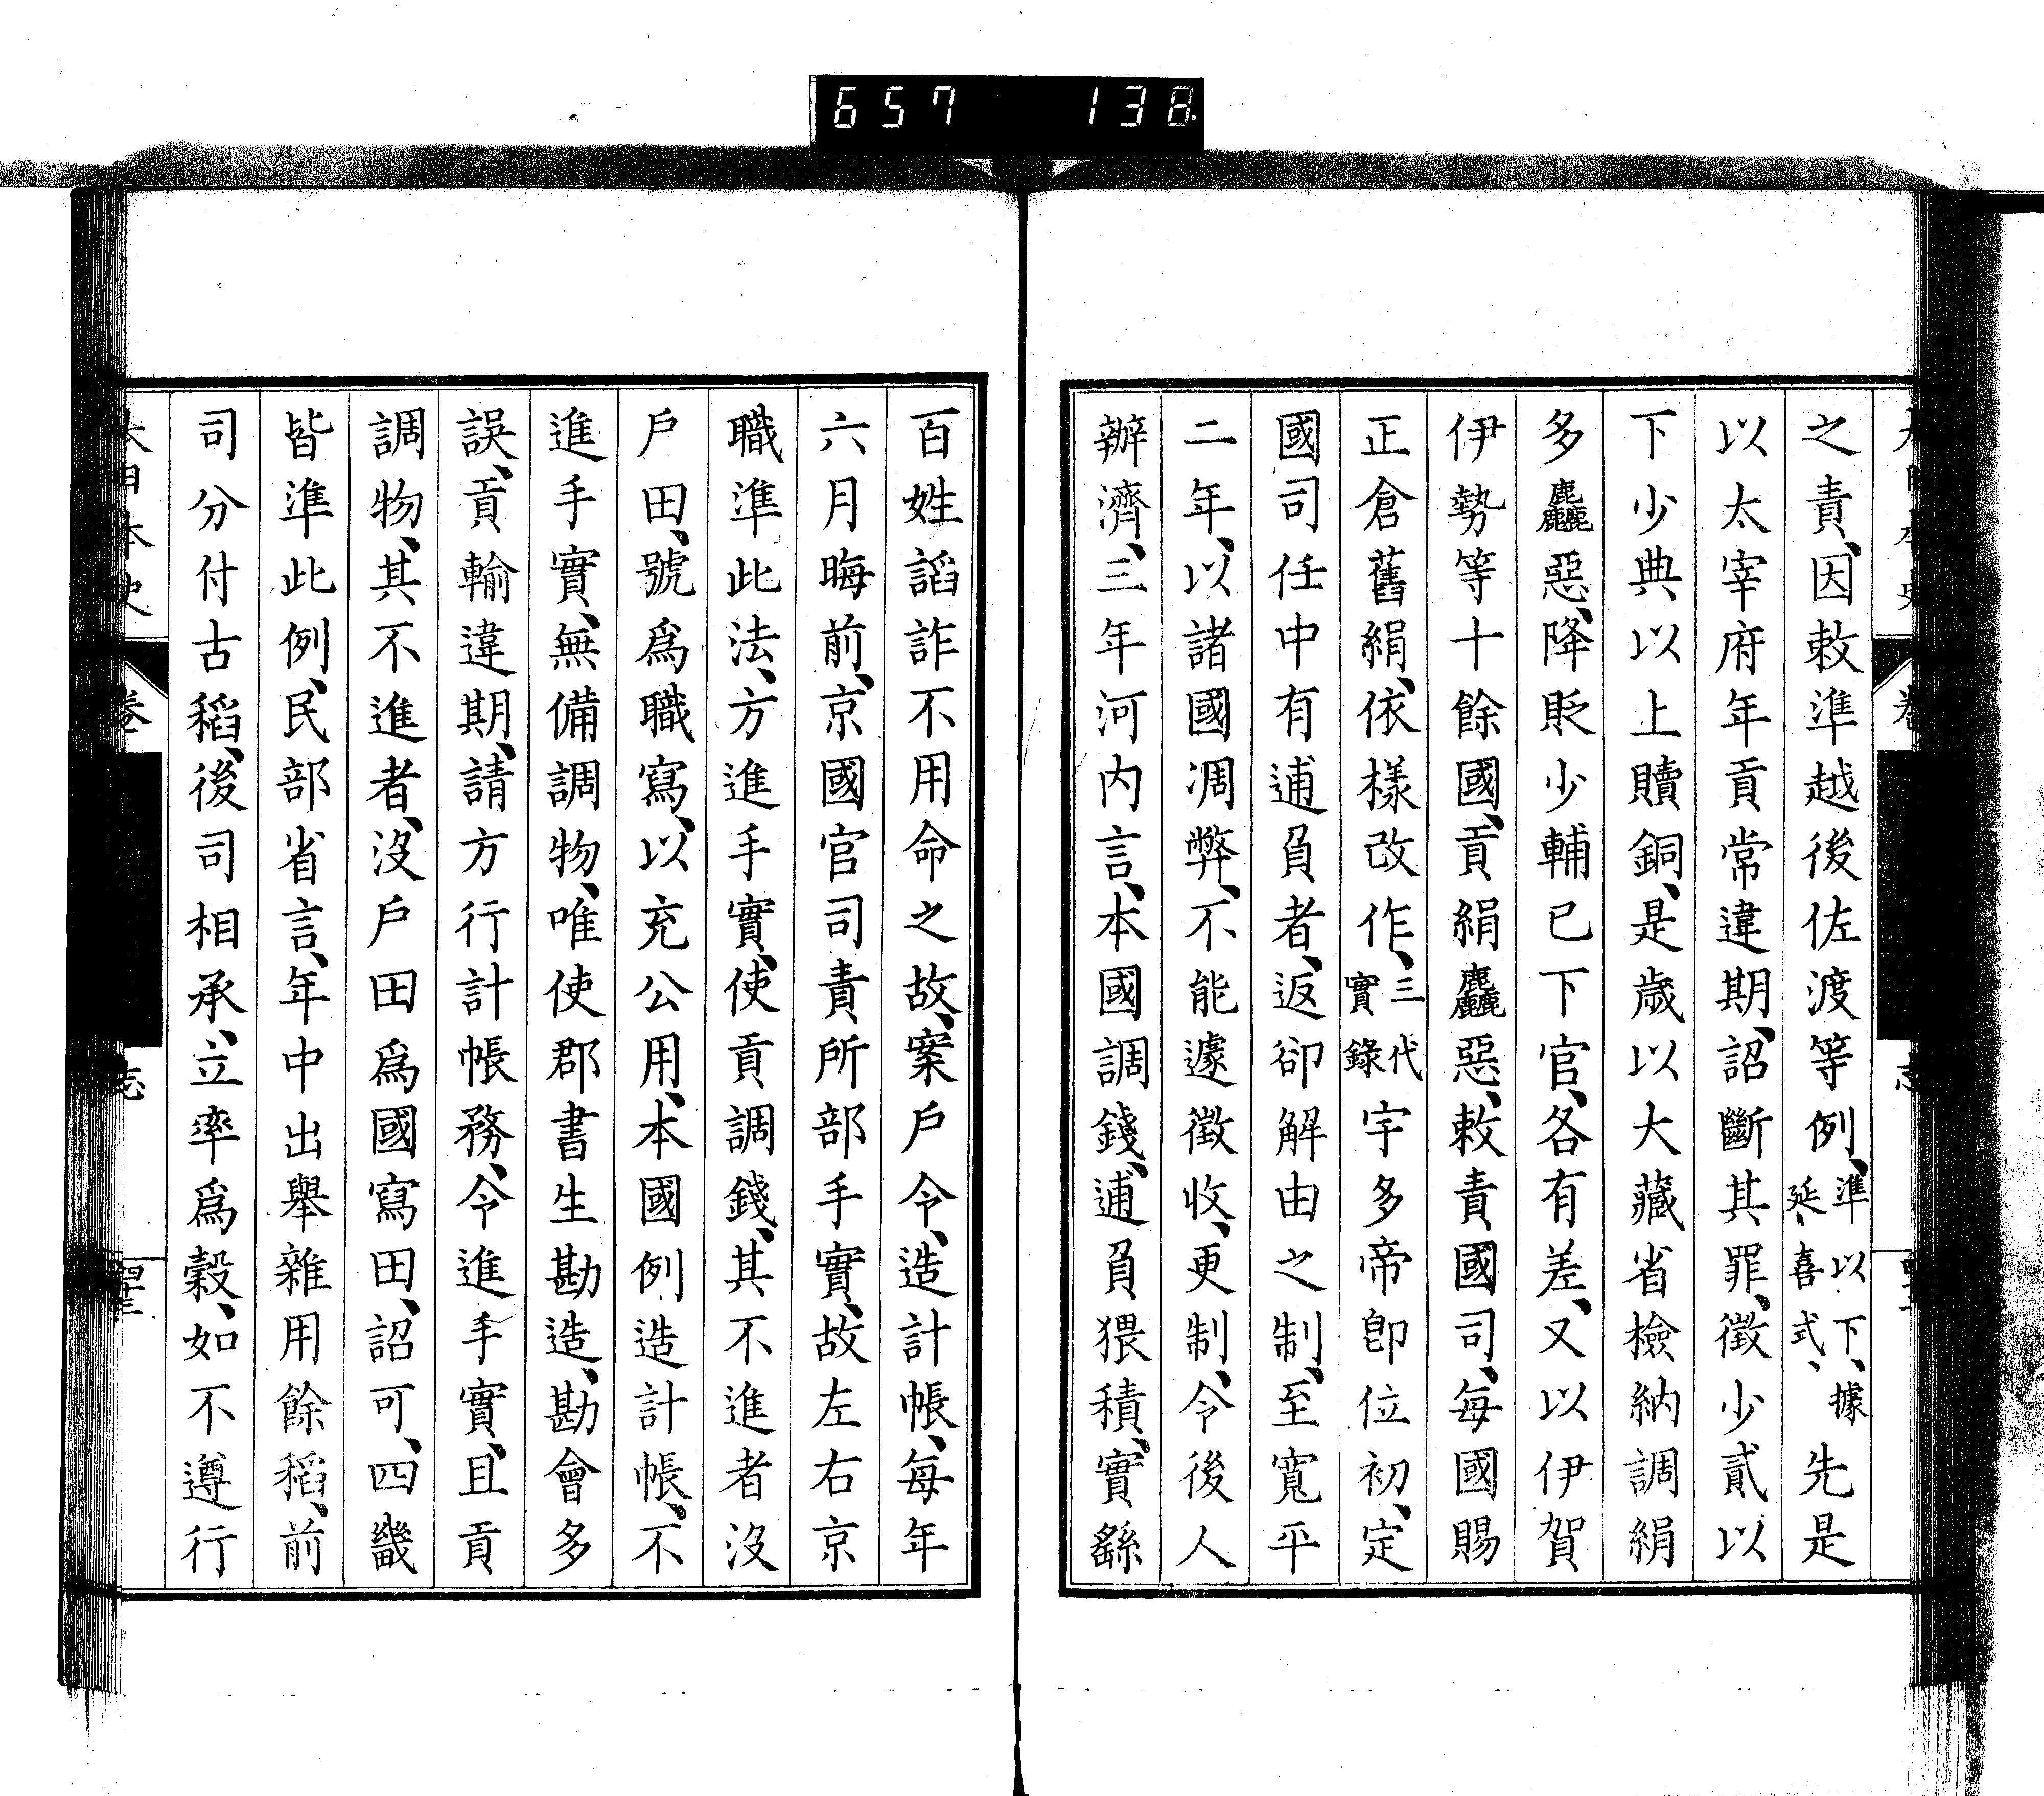 657 138
之責、因敕準越後佐渡等例、準以下、據延喜式、先是
以太宰府年貢常違期、詔斷其罪、徵少貳以
下少典以上贖銅、是歲以大藏省檢納調絹
多麤惡、降貶少輔已下官、各有差、又以伊賀
伊勢等十餘國、貢絹麤惡、敕責國司、每國賜
正倉舊絹、依樣改作、三代實錄宇多帝卽位初、定
國司任中有逋負者、返卻解由之制、至寬平
二年、以諸國凋弊、不能遽徵收、更制、令後人
辦濟、三年河内言、本國調錢、逋負猥積、實繇
百姓謟詐不用命之故、案戶令、造計帳、每年
六月晦前、京國官司責所部手實、故左右京
職準此法、方進手實、使貢調錢、其不進者沒
戶田、號爲職寫、以充公用、本國例造計帳、不
進手實、無備調物、唯使郡書生勘造、勘會多
誤、貢輸違期、請方行計帳務、令進手實、且貢
調物、其不進者、沒戶田爲國寫田、詔可、四畿
皆準此例、民部省言、年中出舉雜用餘稻、前
司分付古稻、後司相承、立率爲穀、如不遵行
大日本史
卷
志